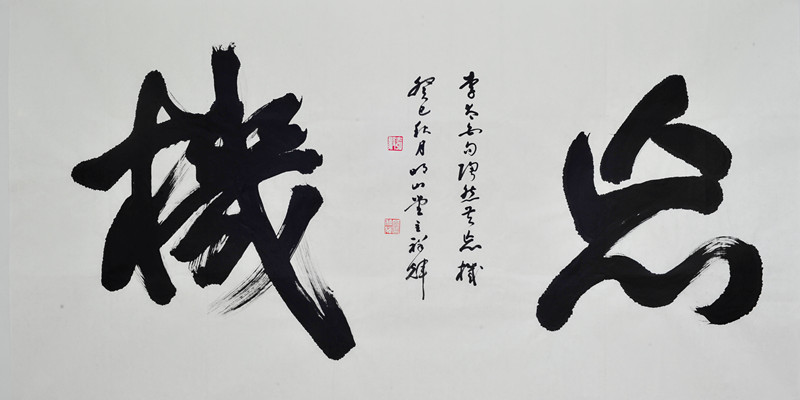 忘機
李太白句陶然共忘機
癸巳秋月明山堂主